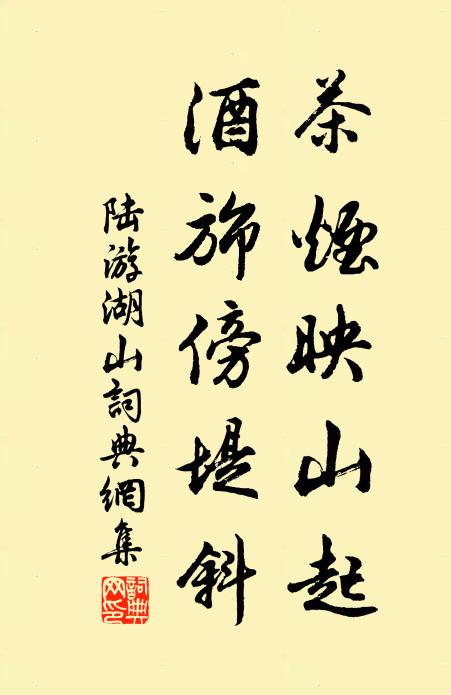 茶煙映山起
酒旆傍堤斜
陆游湖山詞典網集
詞典网印